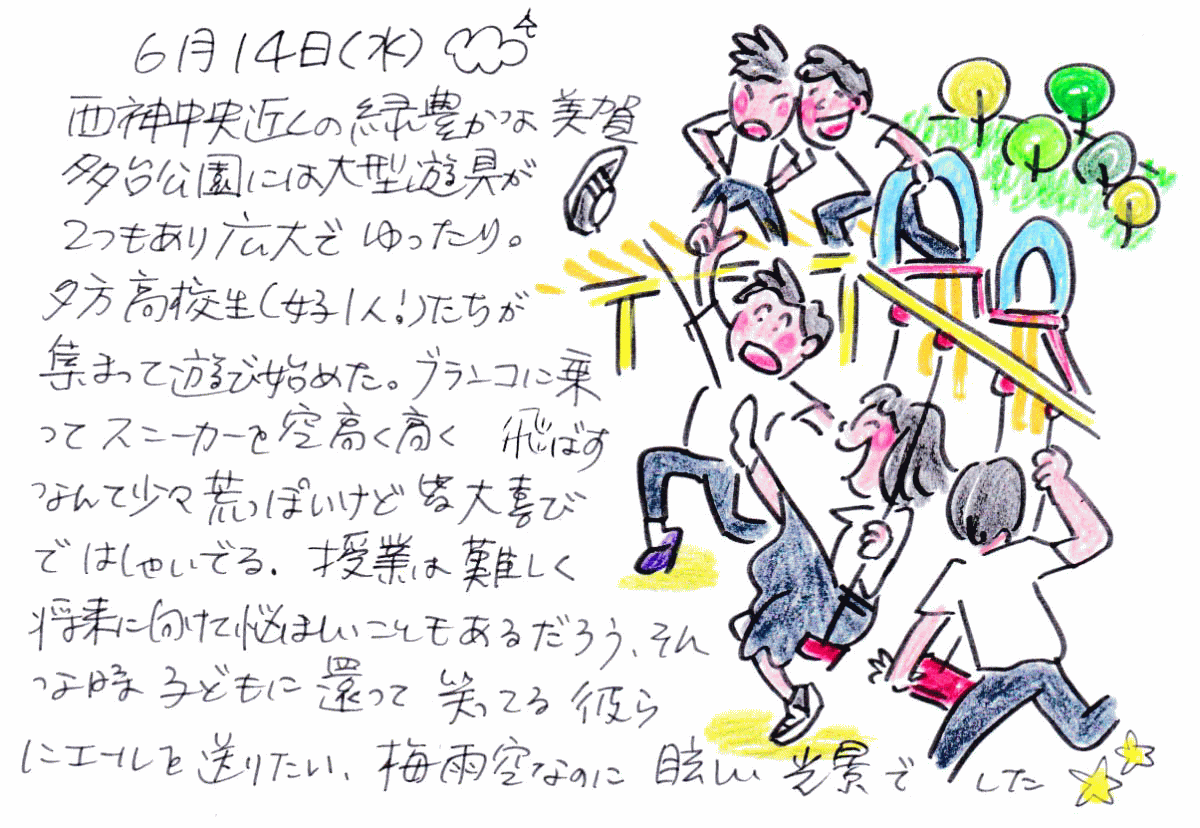 6月14日(水)
西神中央近くの緑豊かな美賀
多台公園には大型遊具が
2つもあり広大でゆったり。
夕方高校生(女子1人!)たちが
集まって遊び始めた。ブランコに乗
ってスニーカーを空高く高く 飛ばす
なんて少々荒っぽいけど皆大喜び
ではしゃいでる。授業は難しく
将来に向けて悩ましいこともあるだろう、そん
な時子どもに還って笑ってる彼ら
にエールを送りたい、梅雨空なのに眩しい光景でした